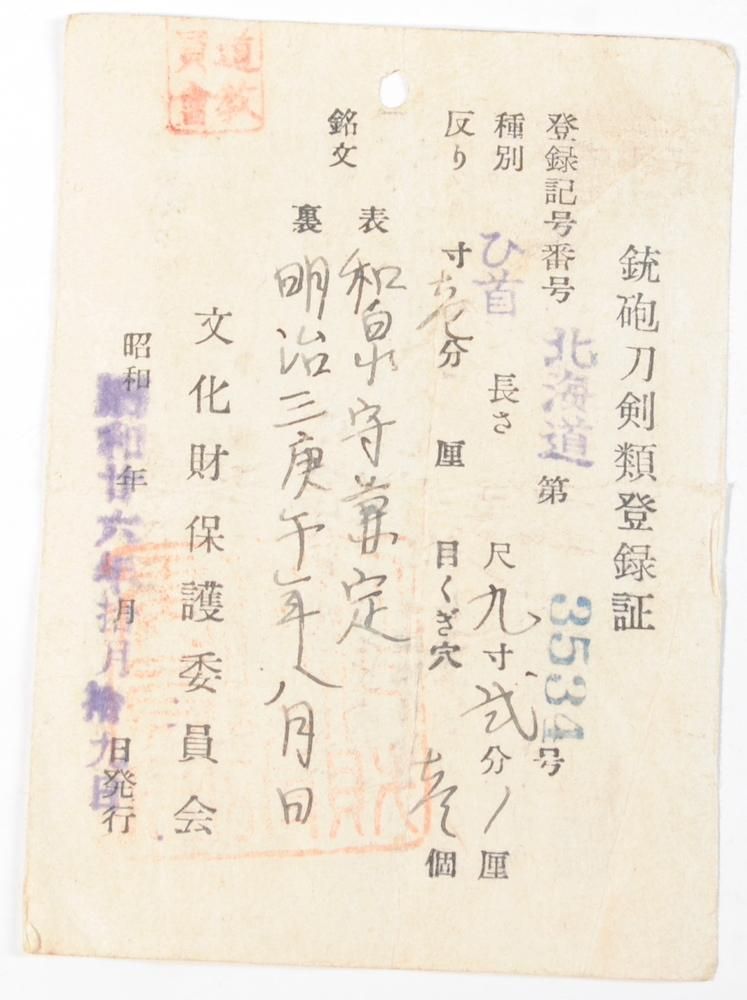 銃砲刀剣類登録証
登録記号番号 北海道 第 3534号
種別 ひ首 長さ 尺九寸弐分 厘
反り 寸壱分 厘 目くぎ穴 壱個
銘文
表 和泉守兼定
裏 明治三庚午年八月日
文化財保護委員会
昭和 年 月 日発行
昭和廿六年拾月拾九日